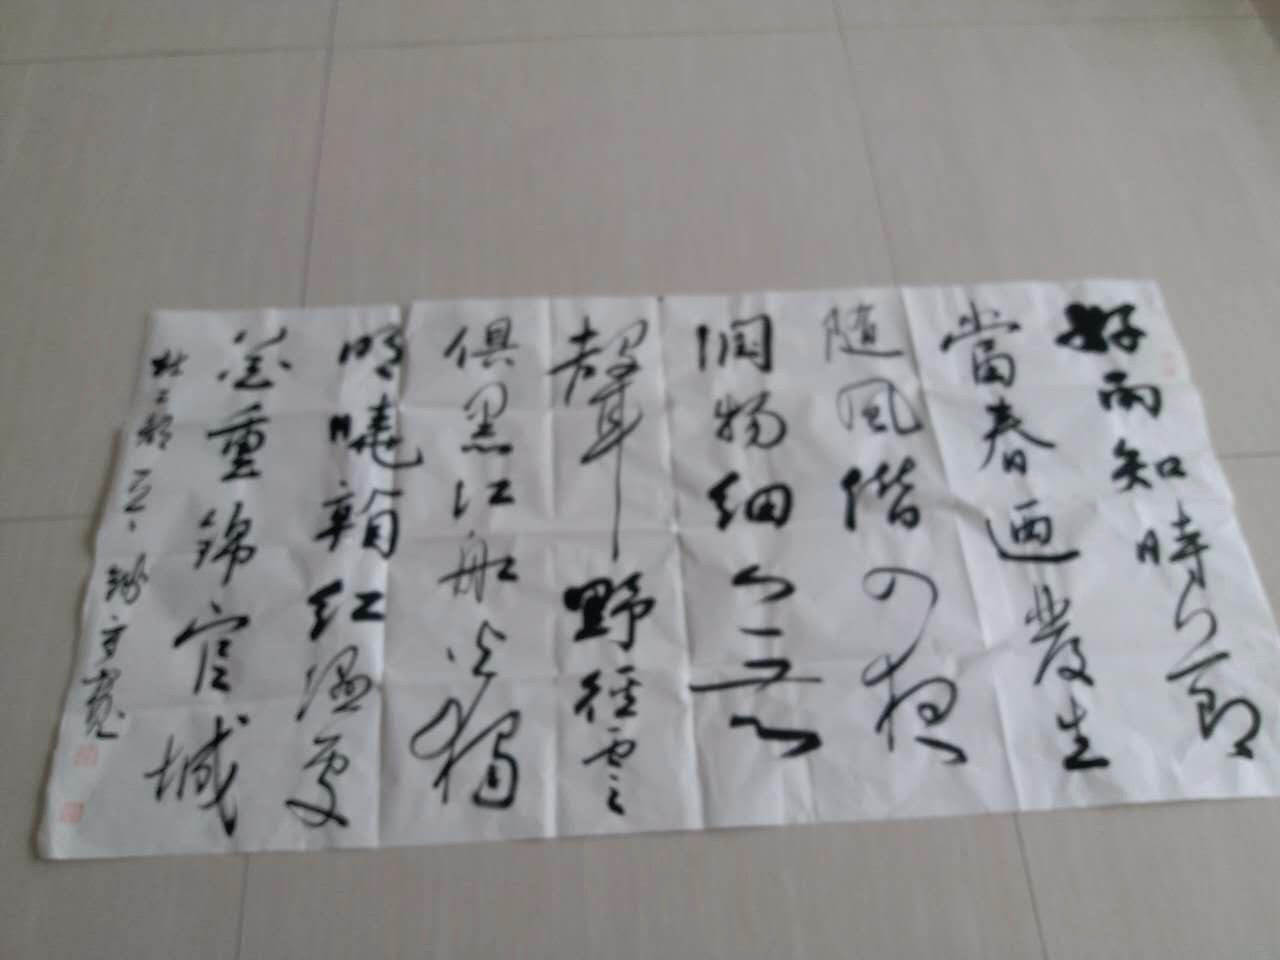 好雨知時節
當春迺發生
随風潛入夜
潤物細無
聲野徑雲
俱黑江船火獨
明曉看紅濕處
花重錦官城
杜工部